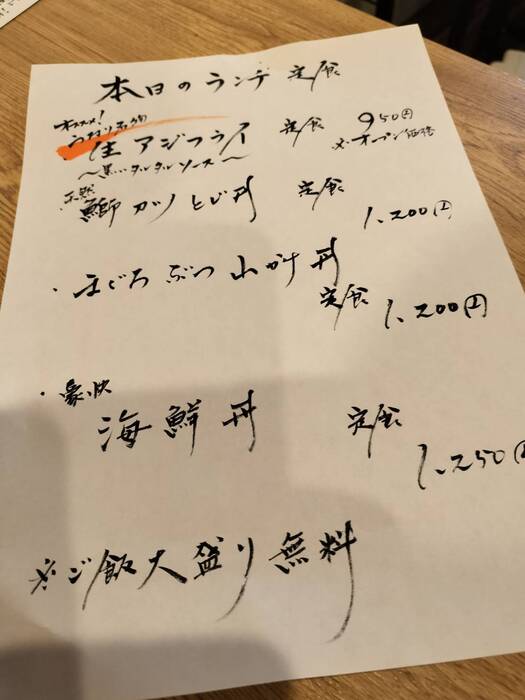 本日のランチ 定食
オススメ!
生 アジフライ 定食 950円
〜黒いタルタルソース〜 ※オープン価格
天然
鰤カツとじ丼 定食
1,200円
・まぐろぶつ山かけ丼
定食 1,200円
・豪快
海鮮丼 定食
1,250円
※ご飯大盛り無料